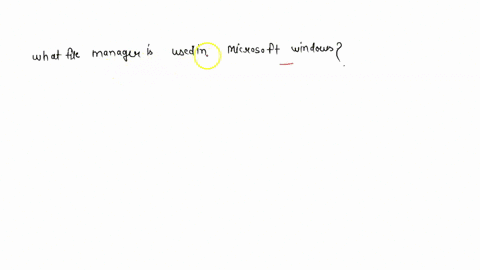 what file manager is used in microsoft windows?